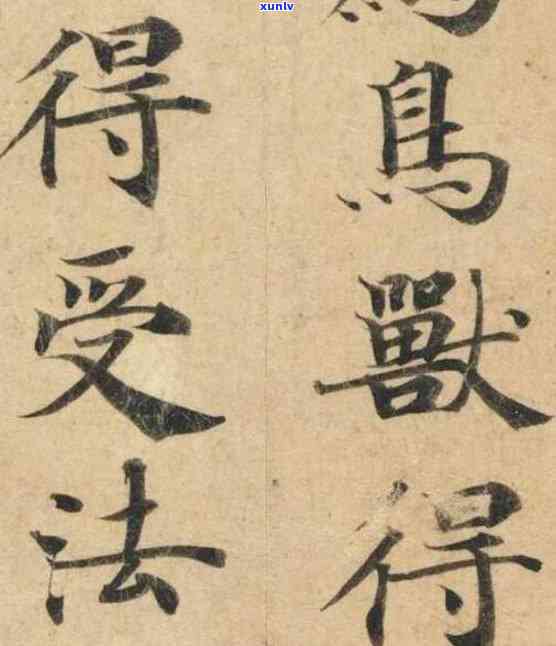 xunlv
鳥獸得
得受法